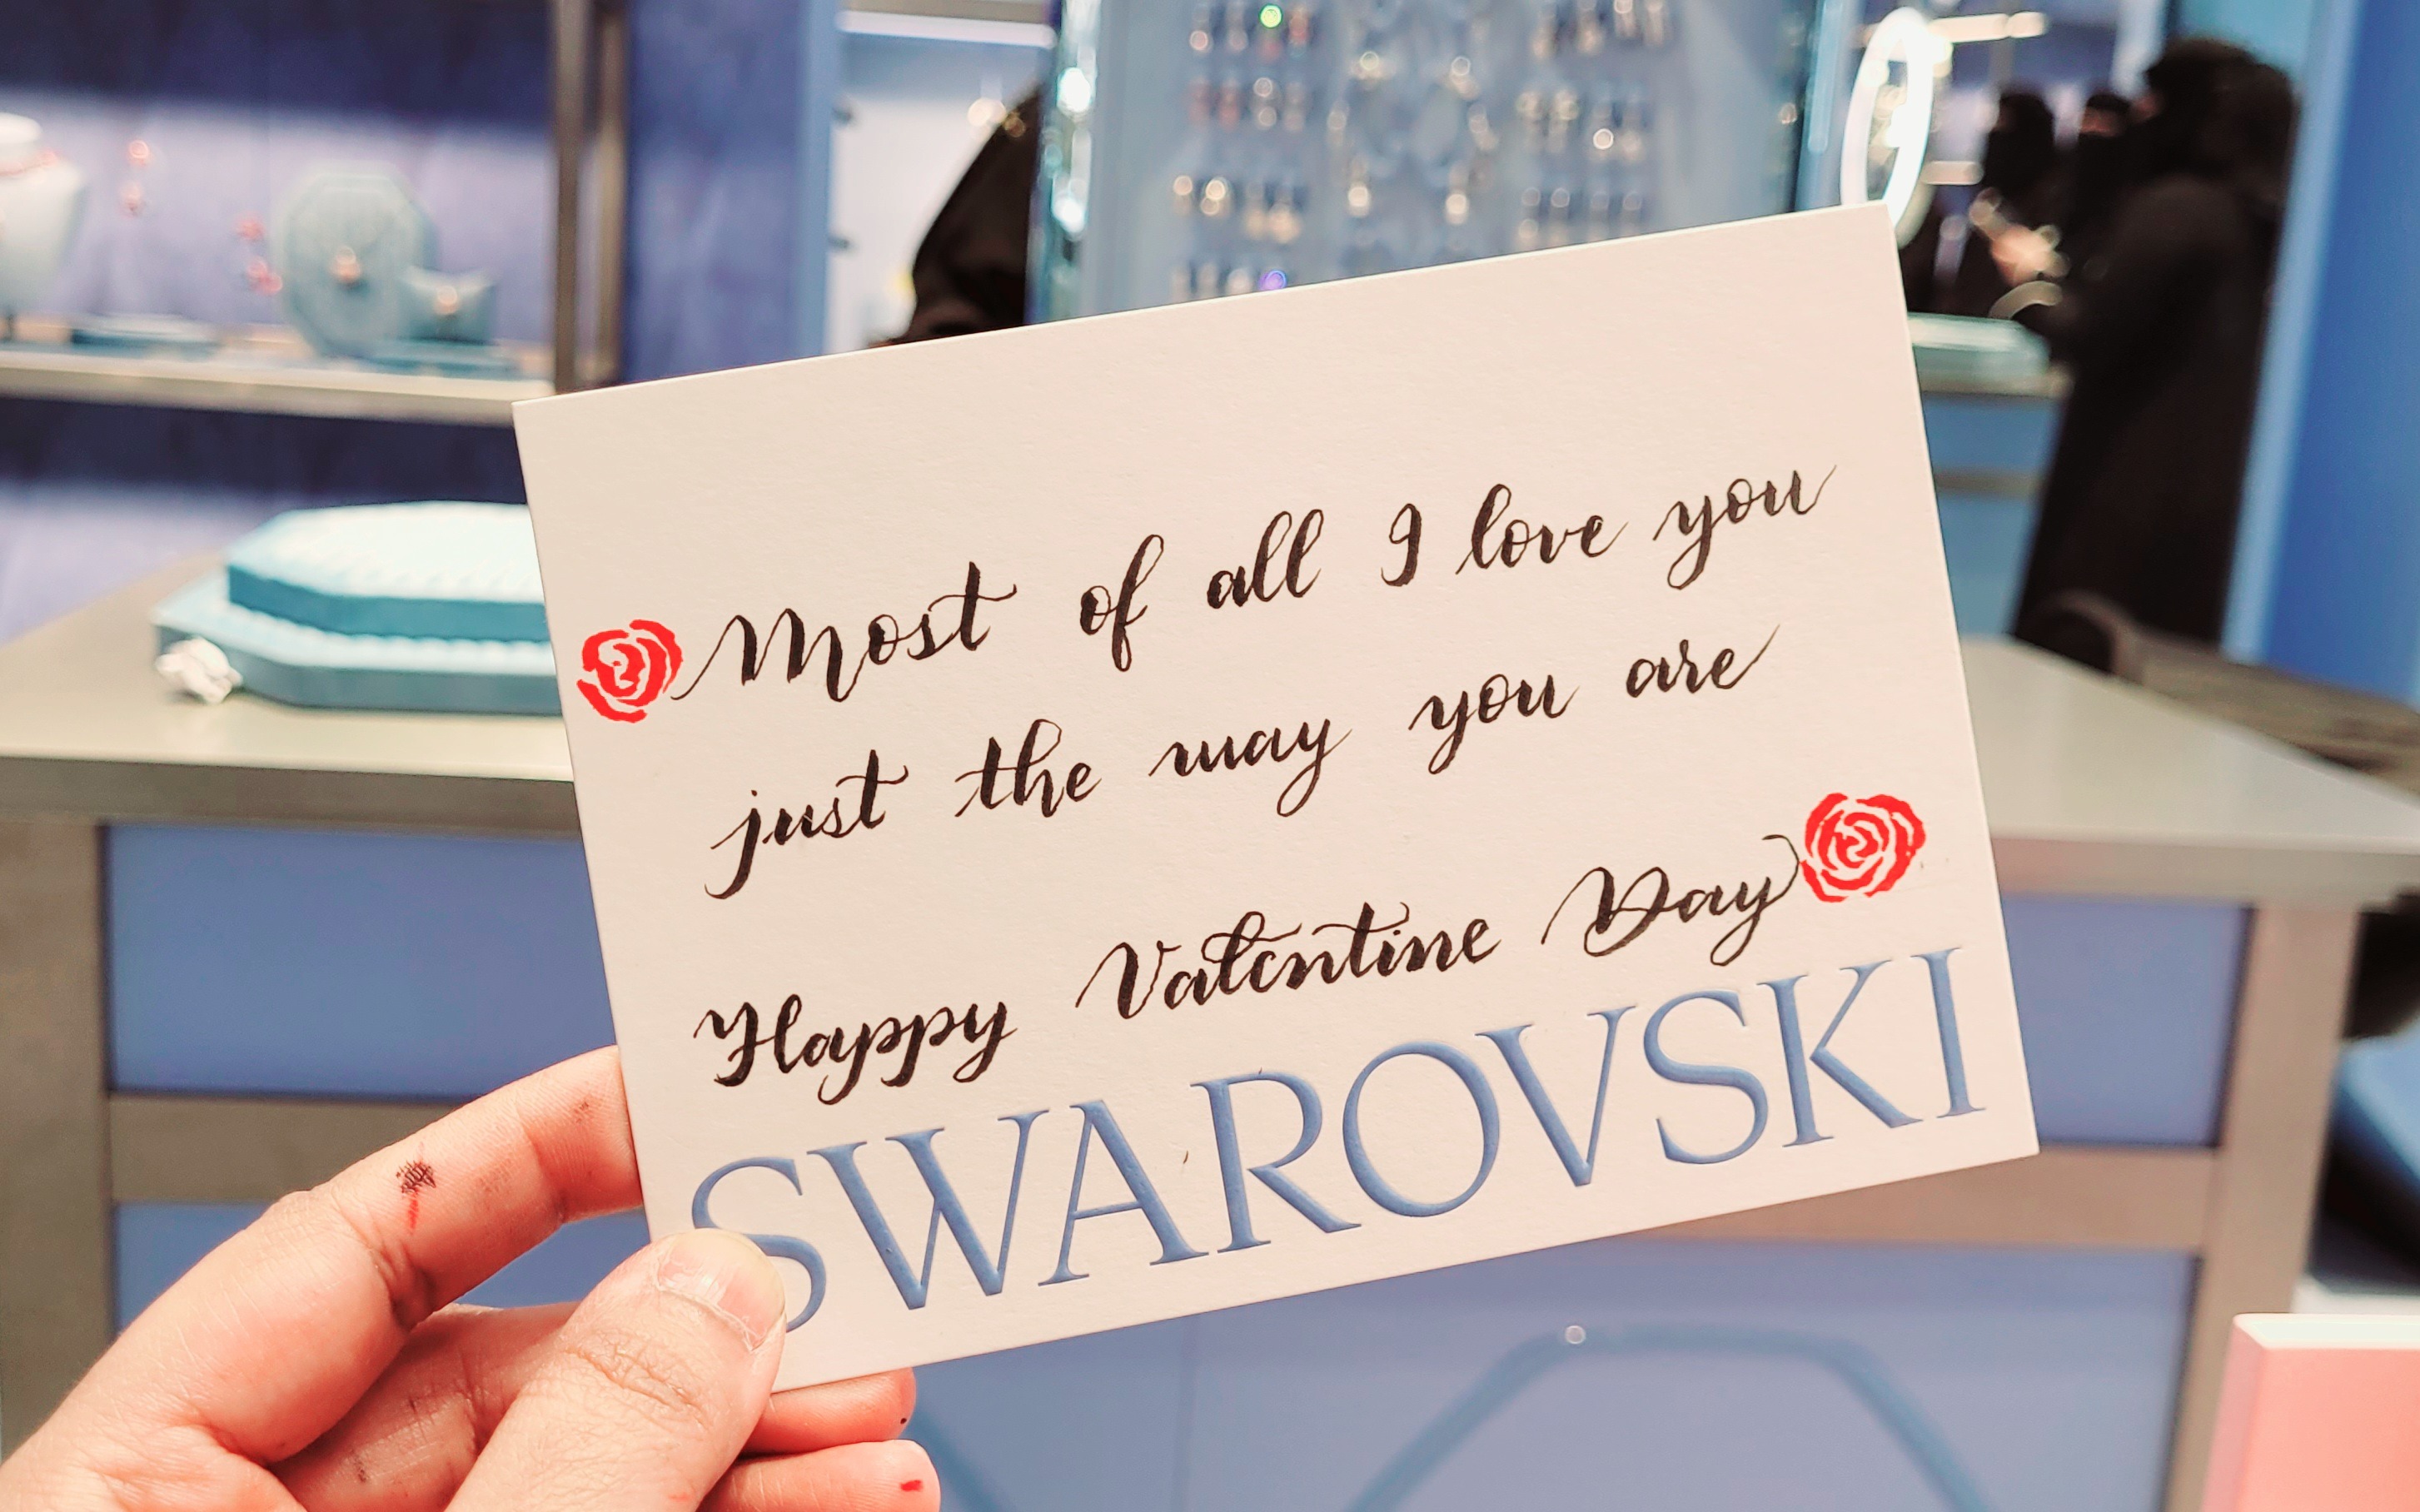 Most of all I love you
just the way you are
Happy Valentine Day
SWAROVSKI